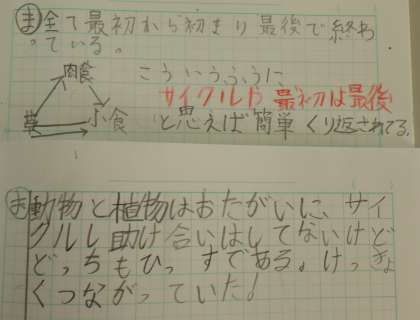 ま 全て最初から初まり最後で終わ
っている。
肉食
草
小食
こういうふうに、
サイクルや最初は最後
と思えば簡単くり返されてる。
ま 動物と植物はおたがいに、サイ
クルし助け合いはしてないけど
どっちもひっすである。けっきょ
くつながっていた！